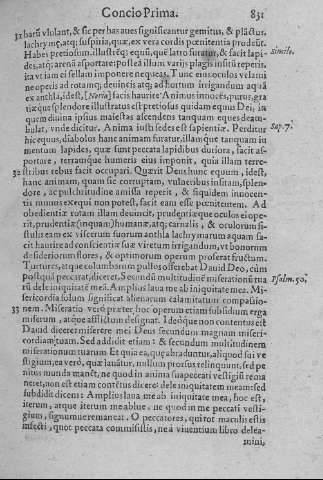 Concio Prima. 831
32 barũ vlulant, & sic per has aues significantur gemitus, & plãctus,
lachrymę, atq; suspiria, quæ, ex vera cordis pœnitentia prodeũt.
Habes pretiosum, illustremque: equũ, quẽ latro furatur, & facit lapi- Simile.
des, atq; arenã asportare: posteà illum varijs plagis institũ reperis,
ita vt iam ei sellam imponere nequeas. Tunc eius oculos velami
ne operis ad rotam; deuincis atq; ad hortum irrigandum aquã
ex anthlia, idest, [Noria] facis haurire Animus innocẽs, purus, gra
tiæque splendore illustratus est pretiosus quidam equus Dei, in
quem diuina ipsius maiestas ascendens tanquam eques deam-
bulat, vnde dicitur. Anima iusti sedes est sapientiæ. Perditur Sap. 7.
hic equus, diabolus hanc animam furatur, illamque tanquam iu
mentum lapides, quæ sunt peccata lapidibus duriora, facit as-
portare, terramque humeris eius imponit, quia illam terre-
32 stribus rebus facit occupari. Quærit Deus hunc equum, idest,
hanc animam, quam sic corruptam, vulneribus insitam, splen-
dore, ac pulchritudine amissa reperit, & siquidem innocen-
tis munus exequi non potest, facit eam esse pœnitentem. Ad
obedientiæ rotam illam deuincit, prudentiæque oculos ei ope-
rit, prudentia (inquam) humanæ, atq; carnalis, & oculorum si-
stulis eam ex viscerum suorum anthla lachrymarum aquam fa-
cit haurire ad conscientiæ suæ viretum irrigandum, vt bonorum
desideriorum flores, & optimorum operum proferat fructum.
Turtures, atque columbarum pullos offerebat Dauid Deo, cũm
postquã peccauit, diceret. Secundũ multitudinẽ miserationũ tua Psalm. 50.
rũ dele iniquitatẽ meã. Amplius laua me ab iniquitate mea. Mi-
sericordia solùm significat alienarum calamitatum compassio-
33 nem. Miseratio verò præter hoc operum etiam subsidium erga
miserum, atque afflictum designat. Ideoque non contentus est
Dauid dicere: miserere mei Deus secundum magnam miseri-
cordiam tuam. Sed addidit etiam: & secundum multitudinem
miserationum tuarum. Et quia ea, quę abraduntur, aliquod sui ve
stigium, ea verò, quæ lauãtur, nullum prorsus relinquunt, sed pe
nitus munda manẽt, ne quod in anima sua peccati vestigiũ rema
neret, non est etiam contẽtus dicere: dele iniquitatem meam: sed
subdidit dicens: Amplius laua me ab iniquitate mea, hoc est,
iterum, atque iterum me ablue, ne quod in me peccati vesti-
gium, signumue remaneat. O peccatores, qui tot maculis estis
infecti, quot peccata commisistis, ne à viuentium libro delea-
mini,